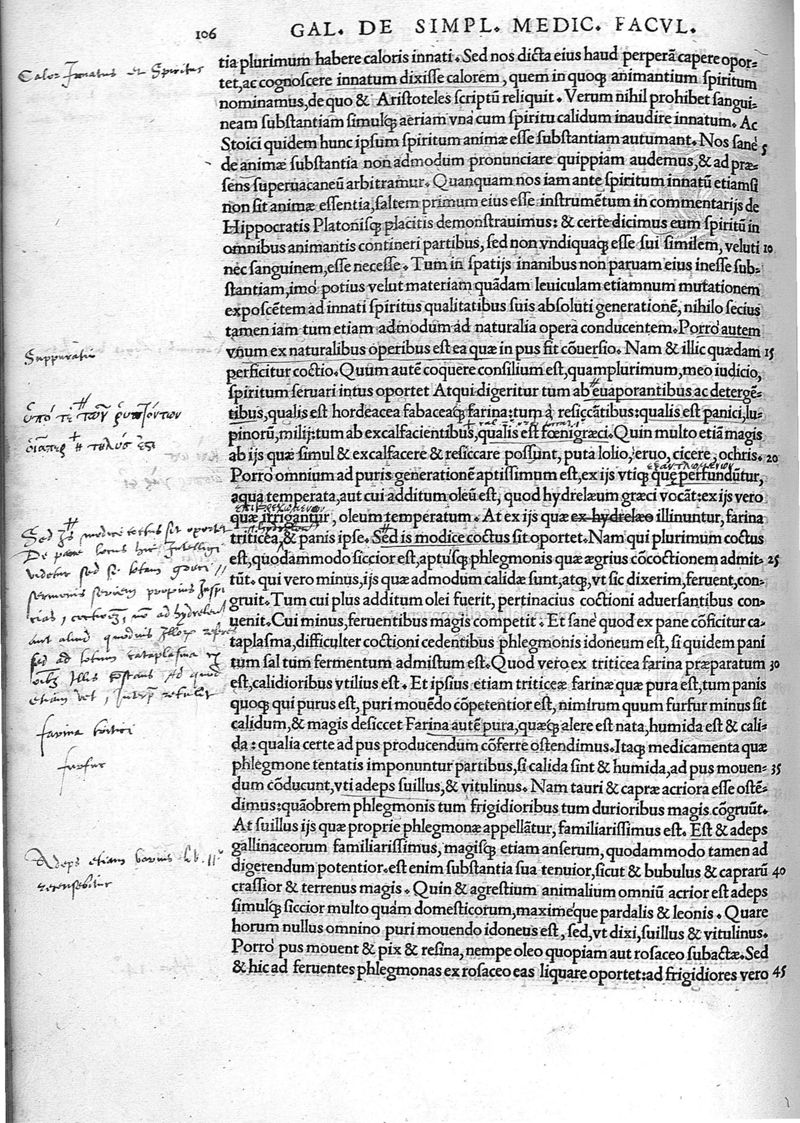 106 GAL. DE SIMPL. MEDIC. FACVL.
Calor Innatus et Spiritus
tia plurimum habere caloris innati. Sed nos dicta eius haud perperā capere opor-
tet, ac cognoscere innatum dixisse calorem, quem in quoq; animantium spiritum
nominamus, de quo & Aristoteles scriptū reliquit. Verum nihil prohibet sangui-
neam substantiam simulq; aeriam vnà cum spiritu calidum inaudire innatum. Ac
Stoici quidem hunc ipsum spiritum animæ esse substantiam autumant. Nos sanè 5
de animæ substātia non admodum pronunciare quippiam audemus, & ad præ-
sens superuacaneū arbitramur. Quanquam nos iam ante spiritum innatū etiamsi
non sit animæ essentia, saltem primum eius esse instrumētum in commentarijs de
Hippocratis Platonisq; placitis demonstrauimus: & certe dicimus eum spiritū in
omnibus animantis contineri partibus, sed non vndiquaq; esse sui similem, veluti 10
nec sanguinem, esse necesse. Tum in spatijs inanibus non paruam eius inesse sub-
stantiam, imò potius velut materiam quādam leuiculam etiamnum mutationem
exposcētem ad innati spiritus qualitatibus suis absoluti generationē, nihilo secius
tamen iam tum etiam admodum ad naturalia opera conducentem. Porrò autem
vnum ex naturalibus operibus est ea quæ in pus fit cōuersio. Nam & illic quædam 15
Suppuratio
perficitur coctio. Quum autē coquere consilium est, quamplurimum, meo iudicio,
spiritum seruari intus oportet Atqui digeritur tum ab euaporantibus ac detergē-
tibus, qualis est hordeacea fabaceaq; farina: tum à resiccātibus: qualis est panici, lu-
pinorū, milij: tum ab excalfacientibus, qualis est fœnigræci. Quin multo etiā magis
ab ijs quæ simul & excalfacere & resiccare possunt, puta lolio, eruo, cicere, ochris. 20
Porrò omnium ad puris generationē aptissimum est, ex ijs vtiq; quę perfundūtur,
aqua temperata, aut cui additum oleū est, quod hydrelæum græci vocāt: ex ijs vero
quæ irrigantur, oleum temperatum. At ex ijs quæ ex hydrelæo illinuntur, farina
Sed modice coctus sit oportet
triticea, & panis ipse. Sed is modice coctus sit oportet. Nam qui plurimum coctus
De pane locus hic
est, quodammodo siccior est, aptusq; phlegmonis quæ ægrius cōcoctionem admit- 25
tūt. qui vero minus, ijs quæ admodum calidæ sunt, atq;, vt sic dixerim, feruent, con-
gruit. Tum cui plus additum olei fuerit, pertinacius coctioni aduersantibus con-
uenit. Cui minus, feruentibus magis competit. Et sanè quod ex pane cōficitur ca-
taplasma, difficulter coctioni cedentibus phlegmonis idoneum est, si quidem pani
tum sal tum fermentum admistum est. Quod vero ex triticea farina præparatum 30
est, calidioribus vtilius est. Et ipsius etiam triticeæ farinæ quæ pura est, tum panis
quoq; qui purus est, puri mouēdo cōpetentior est, nimirum quum furfur minus sit
farina tritici
calidum, & magis desiccet Farina autē pura, quæq; alere est nata, humida est & cali-
da: qualia certe ad pus producendum cōferre ostendimus. Itaq; medicamenta quæ
furfur
phlegmone tentatis imponuntur partibus, si calida sint & humida, ad pus mouen- 35
dum cōducunt, vti adeps suillus, & vitulinus. Nam tauri & capræ acriora esse ostē-
dimus: quāobrem phlegmonis tum frigidioribus tum durioribus magis cōgruūt.
At suillus ijs quæ proprie phlegmonæ appellātur, familiarissimus est. Est & adeps
gallinaceorum familiarissimus, magisq; etiam anserum, quodammodo tamen ad
Adeps etiam varius lib. 11
digerendum potentior. est enim substantia sua tenuior, sicut & bubulus & caprarū 40
recensebitur
crassior & terrenus magis. Quin & agrestium animalium omniū acrior est adeps
simulq; siccior multo quàm domesticorum, maximeque pardalis & leonis. Quare
horum nullus omnino puri mouendo idoneus est, sed, vt dixi, suillus & vitulinus.
Porrò pus mouent & pix & resina, nempe oleo quopiam aut rosaceo subactæ. Sed
& hic ad feruentes phlegmonas ex rosaceo eas liquare oportet: ad frigidiores vero 45